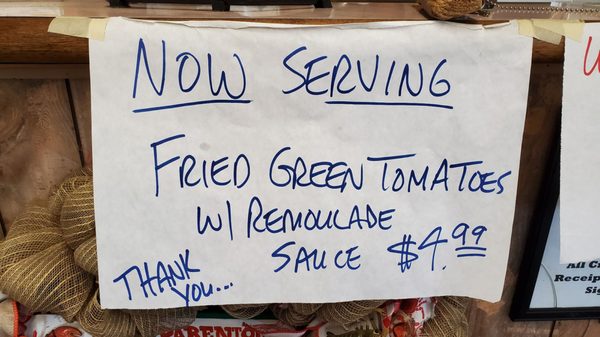 NOW SERVING
FRIED GREEN TOMATOES
W/ REMOULADE
SAUCE $4.99
THANK
YOU...
All C
Receip
Sig